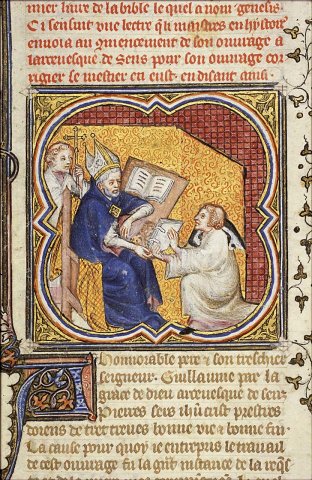 mier liure de la bible le quel a nom genesis.
Ci sensuit vne lectre q̃ maistres en hystoir
enuoia au cõmencement de son ouurage a
larceuesque de Sens pour son ouurage cor
rigier se mestier en eust. en disant ainsi.
A Honnorable pere et son treschier
seigneur. Guillaume par la
grace de dieu arceuesque de sens
Pierres sers ihũ crist prestres
doiens de tret treues bonne vie et bonne fin.
La cause pour quoy ie entrepris le trauail
de cest ouurage fu la grãt instance de la reqs̃